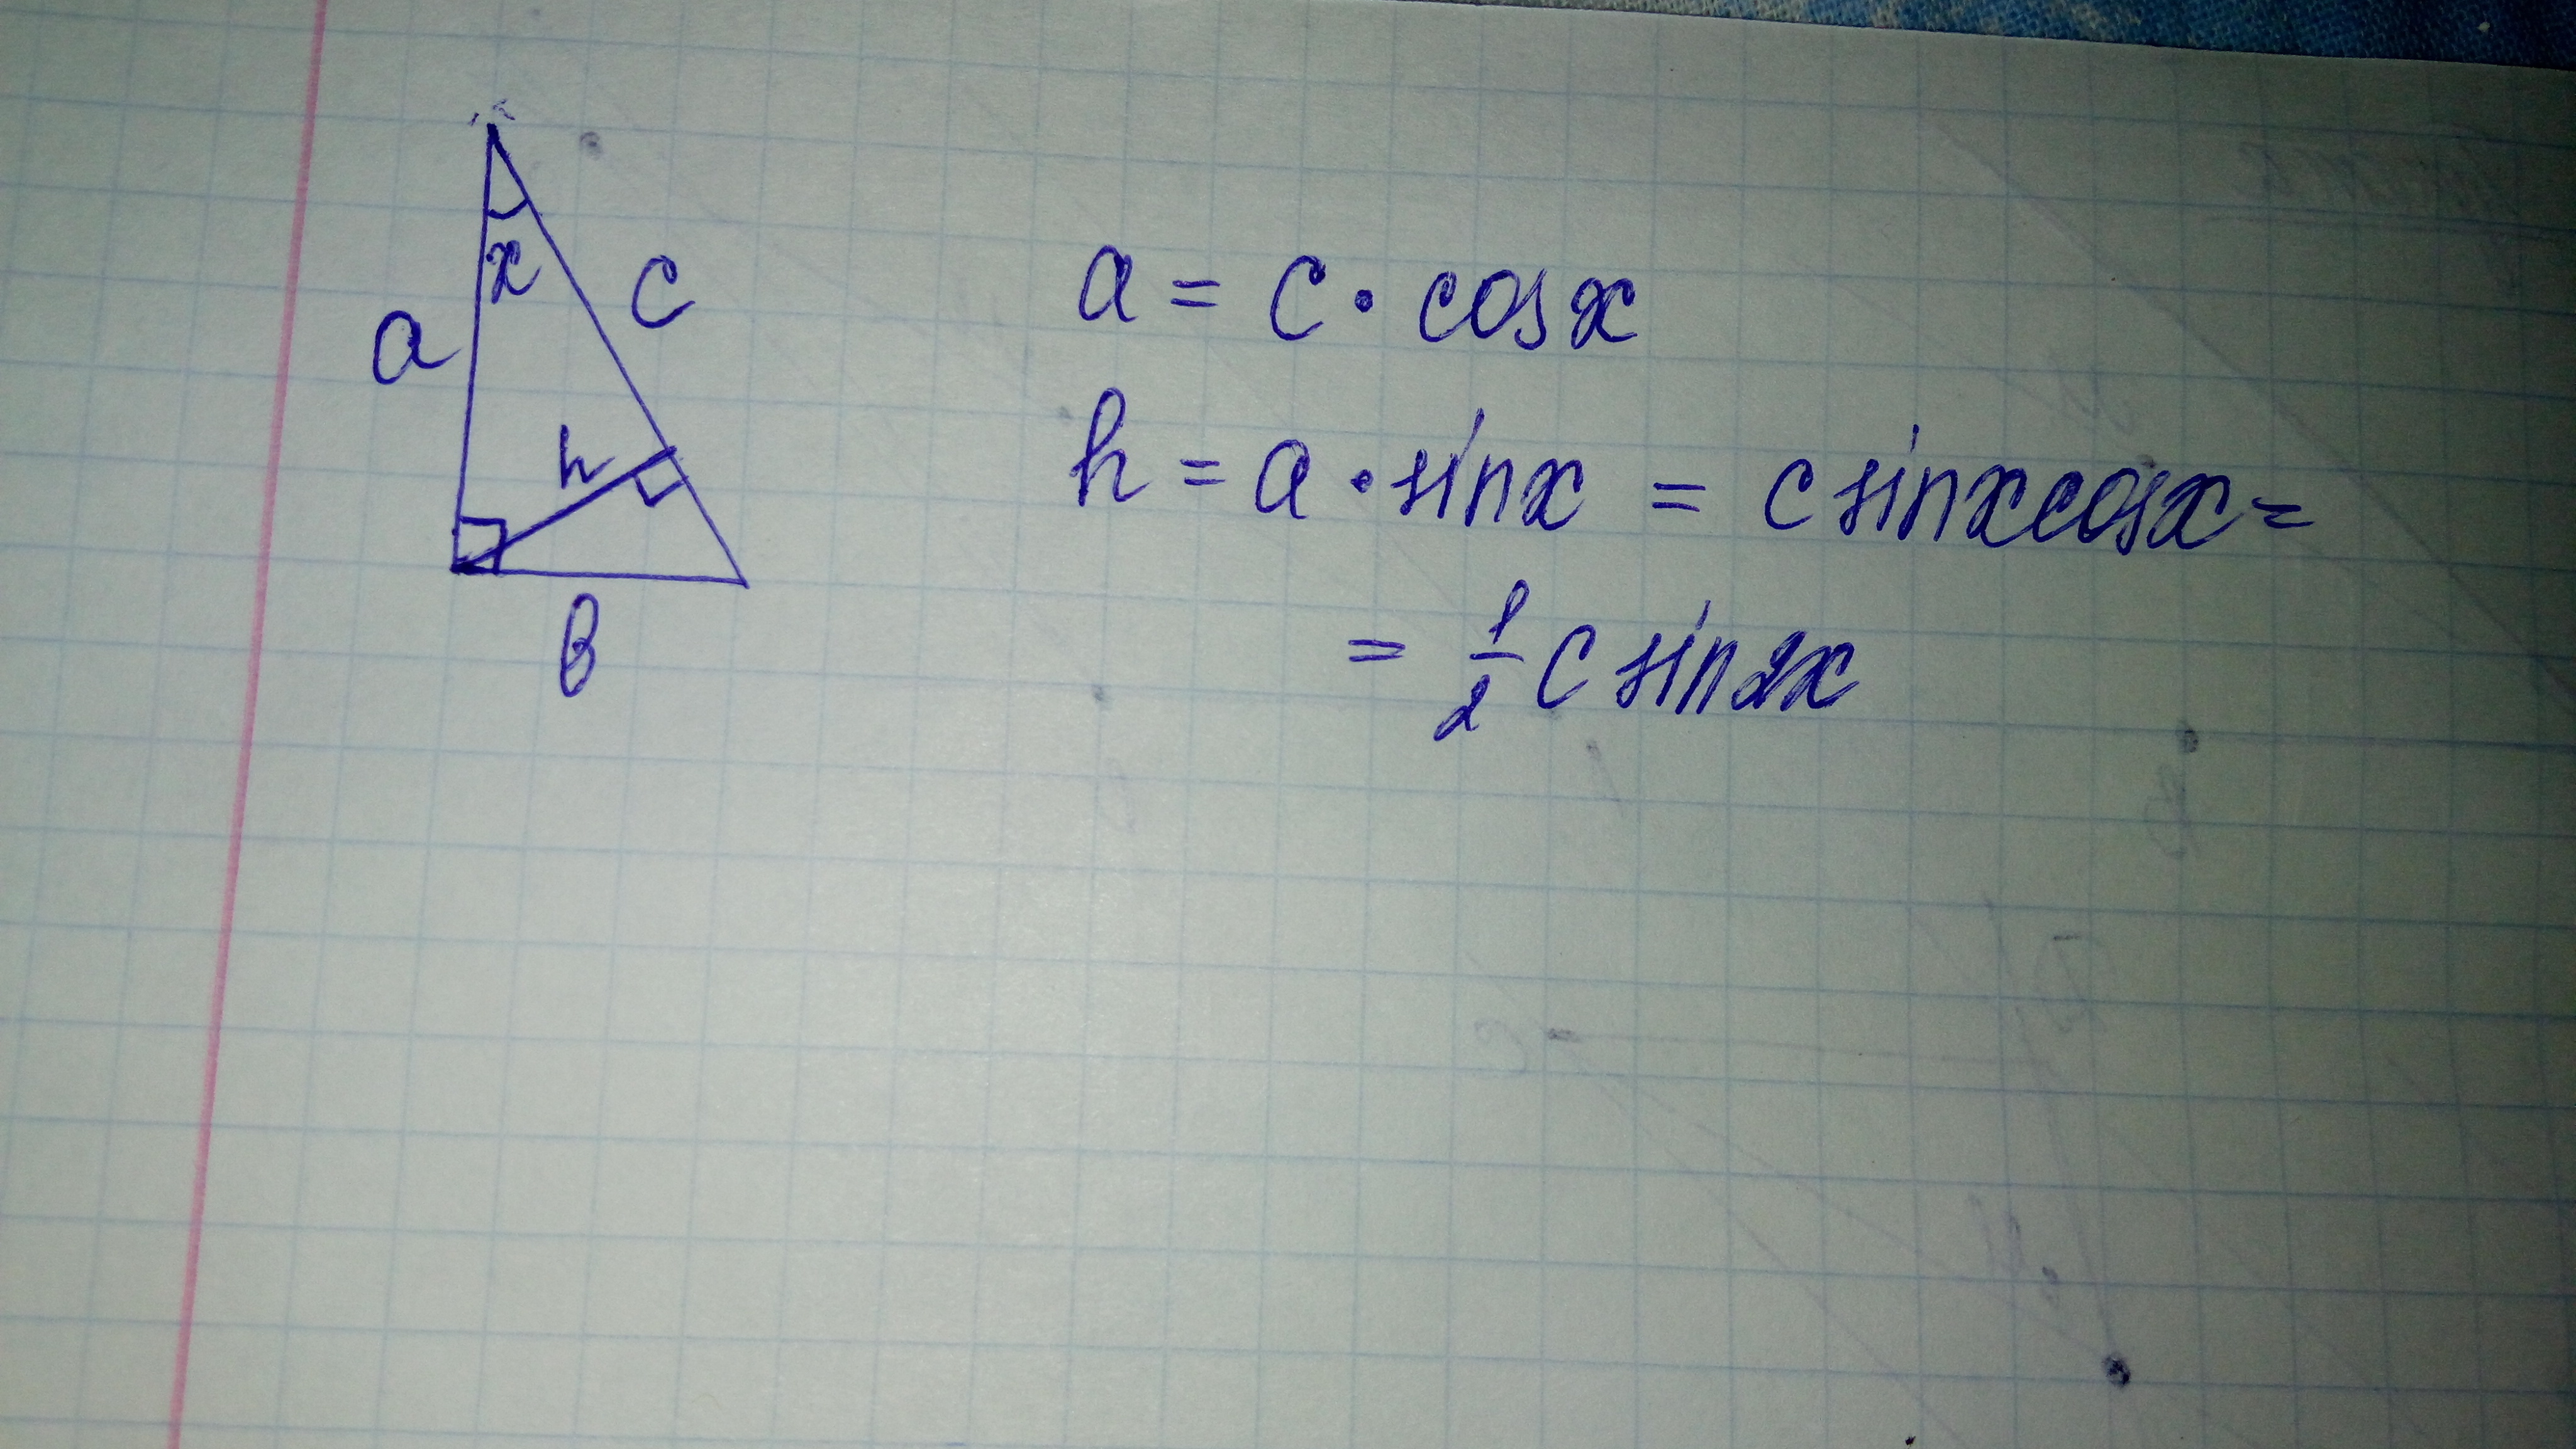 x
c
a
h
b
a = c · cosx
h = a · sinx = c sinxcosx =
= 1/2 c sin2x